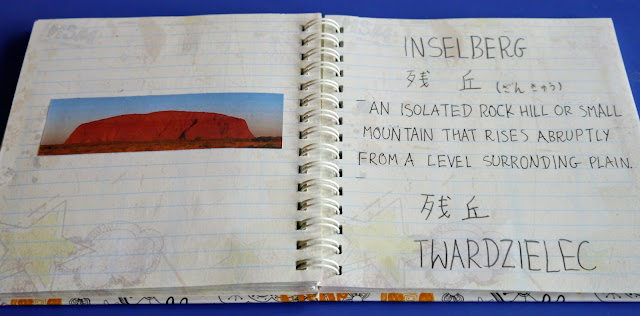 INSELBERG
残 丘 (ざんきゅう)
AN ISOLATED ROCK HILL OR SMALL
MOUNTAIN THAT RISES ABRUPTLY
FROM A LEVEL SURRONDING PLAIN.
残 丘
TWARDZIELEC